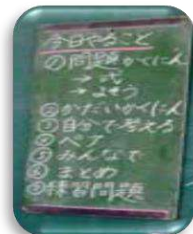 今日やること
①問題かくにん
→式
→よそう
②かだいかくにん
③自分で考える
④ペア
⑤みんなで
⑥まとめ
⑦練習問題